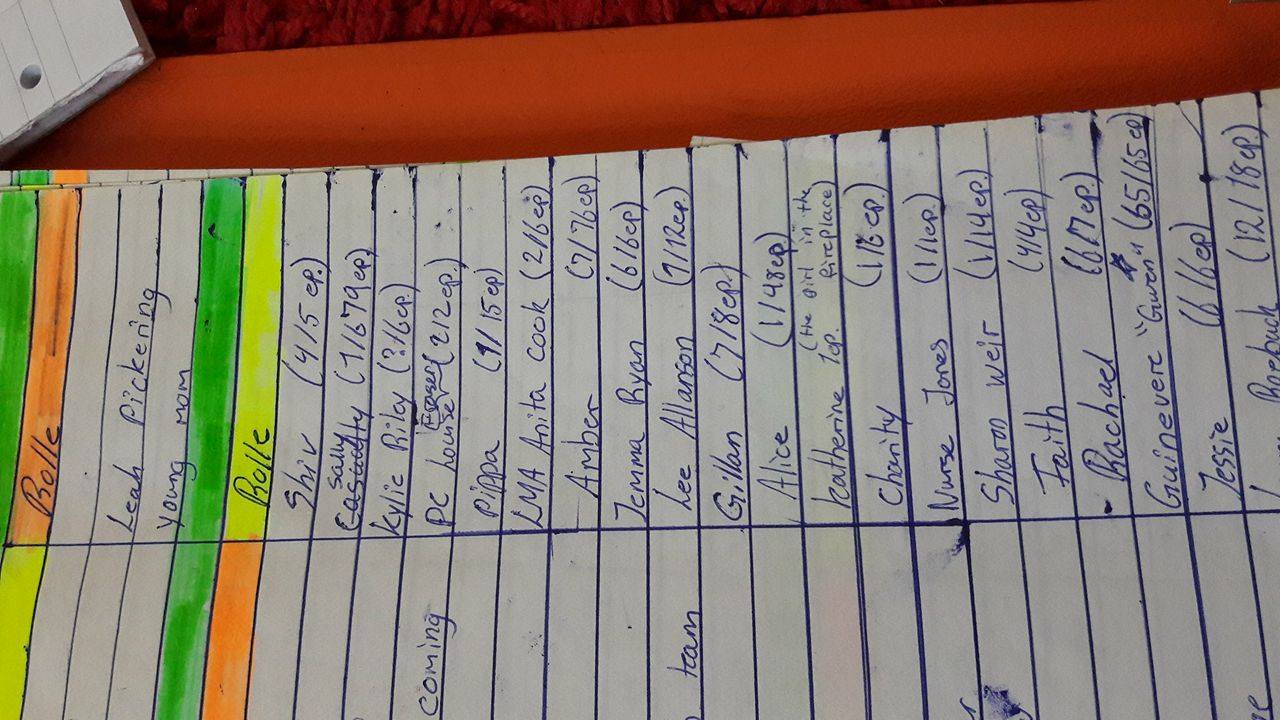 Rolle
Leah Pickering
young mom
Rolle
Shiv (4/5 ep.)
Sally (1/679 ep.)
Kylie Riley (?/6ep.)
PC Louise Fraser (2/2ep.)
coming
Pippa (1/15 ep)
LMA Anita Cook (2/6ep)
Amber (7/76ep)
Jemma Ryan (6/6ep)
Lee Allanson (1/12ep.)
team
Gillan (7/8ep.)
Alice (1/48ep)
(the girl in the fireplace
Katherine 1ep.
Charity (1/6 ep.)
Nurse Jones (1/1ep.)
Sharon Weir (1/14ep.)
Faith (4/4ep)
Rachael (6/7 ep.)
Guinevere "Gwen" (65/65ep)
Jessie (6/6ep)
Roeback (12/18ep)